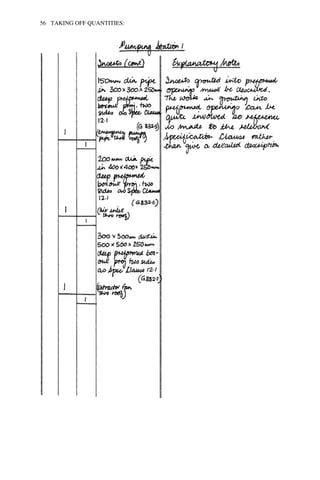 56 TAKING OFF QUANTITIES:
Pumping Station 1
Inserts (cont)
150mm dia pipe
in 300 x 300 x 250mm
deep preformed
boxout proj. two
sides a/b Spec Clause
12.1
(G832.1)
1
(emergency pumping
pipe thro' roof)
1
200mm dia pipe
in 400 x 400 x 250mm
deep preformed
boxout proj. two
sides a/b Spec Clause
12.1
(G832.0)
1
(air inlet
thro roof)
1
300 x 500mm duct in
500 x 500 x 250mm
deep preformed box-
out proj two sides
as Spec Clause 12.1
(G832.2)
1
(Extractor fan
thro roof)
1
Explanatory Notes
Inserts grouted into preformed
openings must be described.
The works in grouting into
preformed openings can be
quite involved so reference
is made to the relevant
Specification Clause rather
than give a detailed description